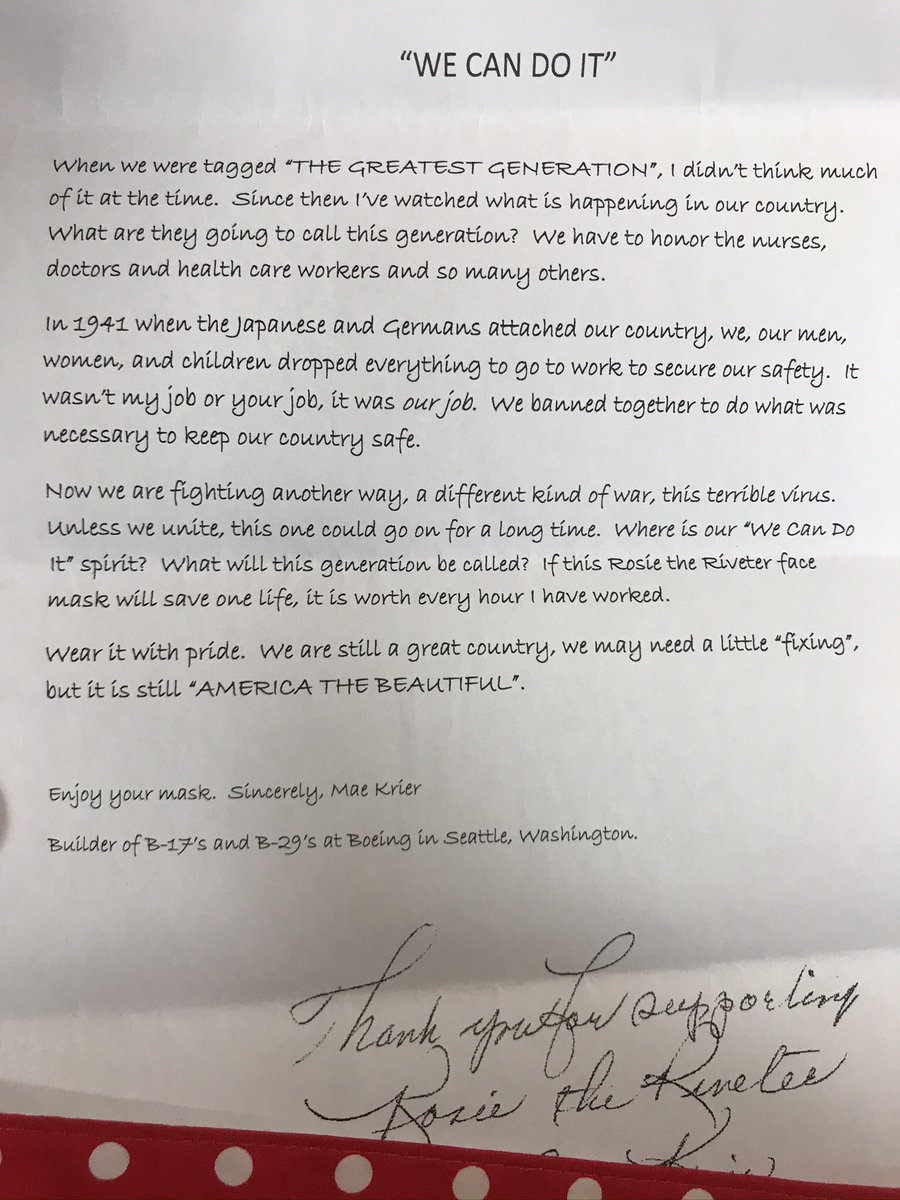 “WE CAN DO IT”
When we were tagged “THE GREATEST GENERATION”, I didn’t think much
of it at the time. Since then I’ve watched what is happening in our country.
What are they going to call this generation? We have to honor the nurses,
doctors and health care workers and so many others.
In 1941 when the Japanese and Germans attached our country, we, our men,
women, and children dropped everything to go to work to secure our safety. It
wasn’t my job or your job, it was our job. We banned together to do what was
necessary to keep our country safe.
Now we are fighting another way, a different kind of war, this terrible virus.
Unless we unite, this one could go on for a long time. Where is our “We Can Do
It” spirit? What will this generation be called? If this Rosie the Riveter face
mask will save one life, it is worth every hour I have worked.
Wear it with pride. We are still a great country, we may need a little “fixing”,
but it is still “AMERICA THE BEAUTIFUL”.
Enjoy your mask. Sincerely, Mae Krier
Builder of B-17’s and B-29’s at Boeing in Seattle, Washington.
Thank you for supporting
Rosie the Riveter